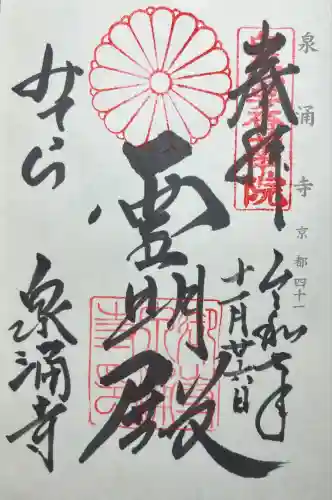 泉涌寺 京都四十一
奉拝
令和七年
十一月廿六日
霊明殿
みてら
泉涌寺